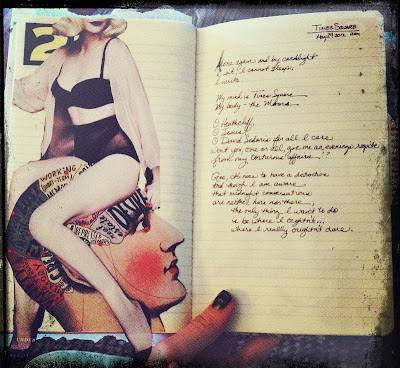 2
WORKING
(SHORT-TERM)
Times Square
May 29 2012
Alone again and by candlelight
I sit, I cannot sleep,
I write
My mind is Times Square
My body - the Moors
O Heathcliff,
O Jesus,
O David Sedaris for all I care
won't you one or all, give me an evening respite
from my torturous affairs,
Gee, it's nice to have a distraction
And though I am aware
that midnight conversations
are neither here nor there,
the only thing I want to do
is be where I oughtn't...
where I really oughtn't dare.